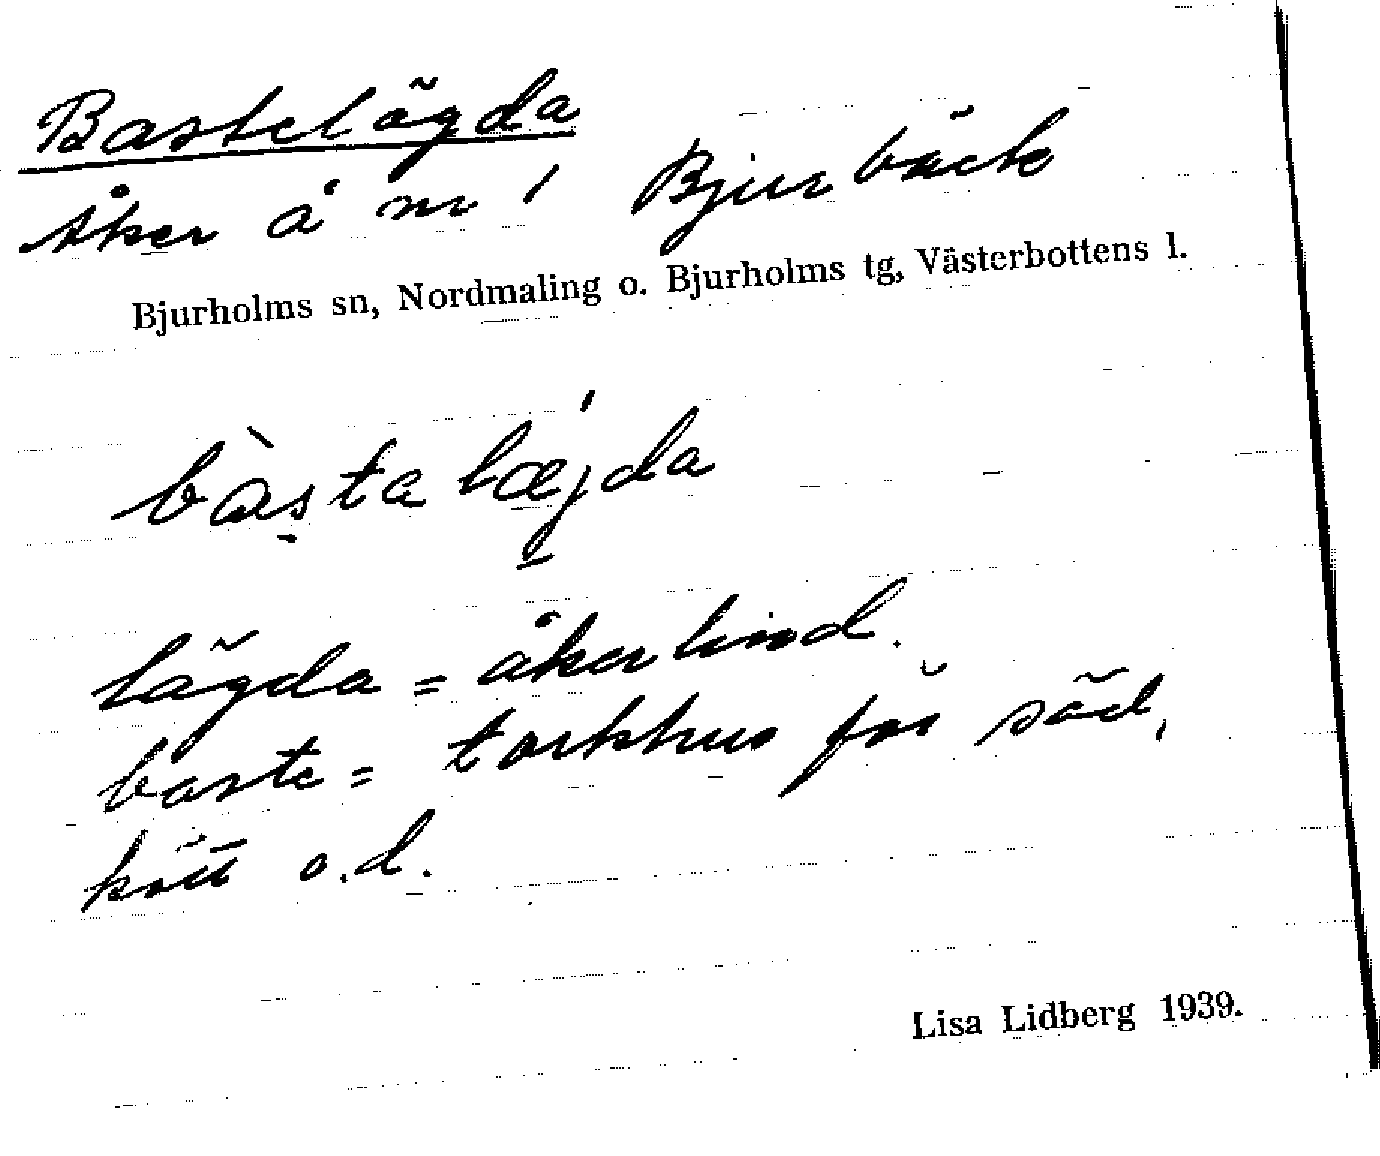 Bastelägda
Åker å nr 1 Bjurbäck
Bjurholms sn, Nordmaling o. Bjurholms tg, Västerbottens l.
bàsta læ´jda
lägda = åkerlind.
baste = torkhus för säd,
kött o.d.
Lisa Lidberg 1939.